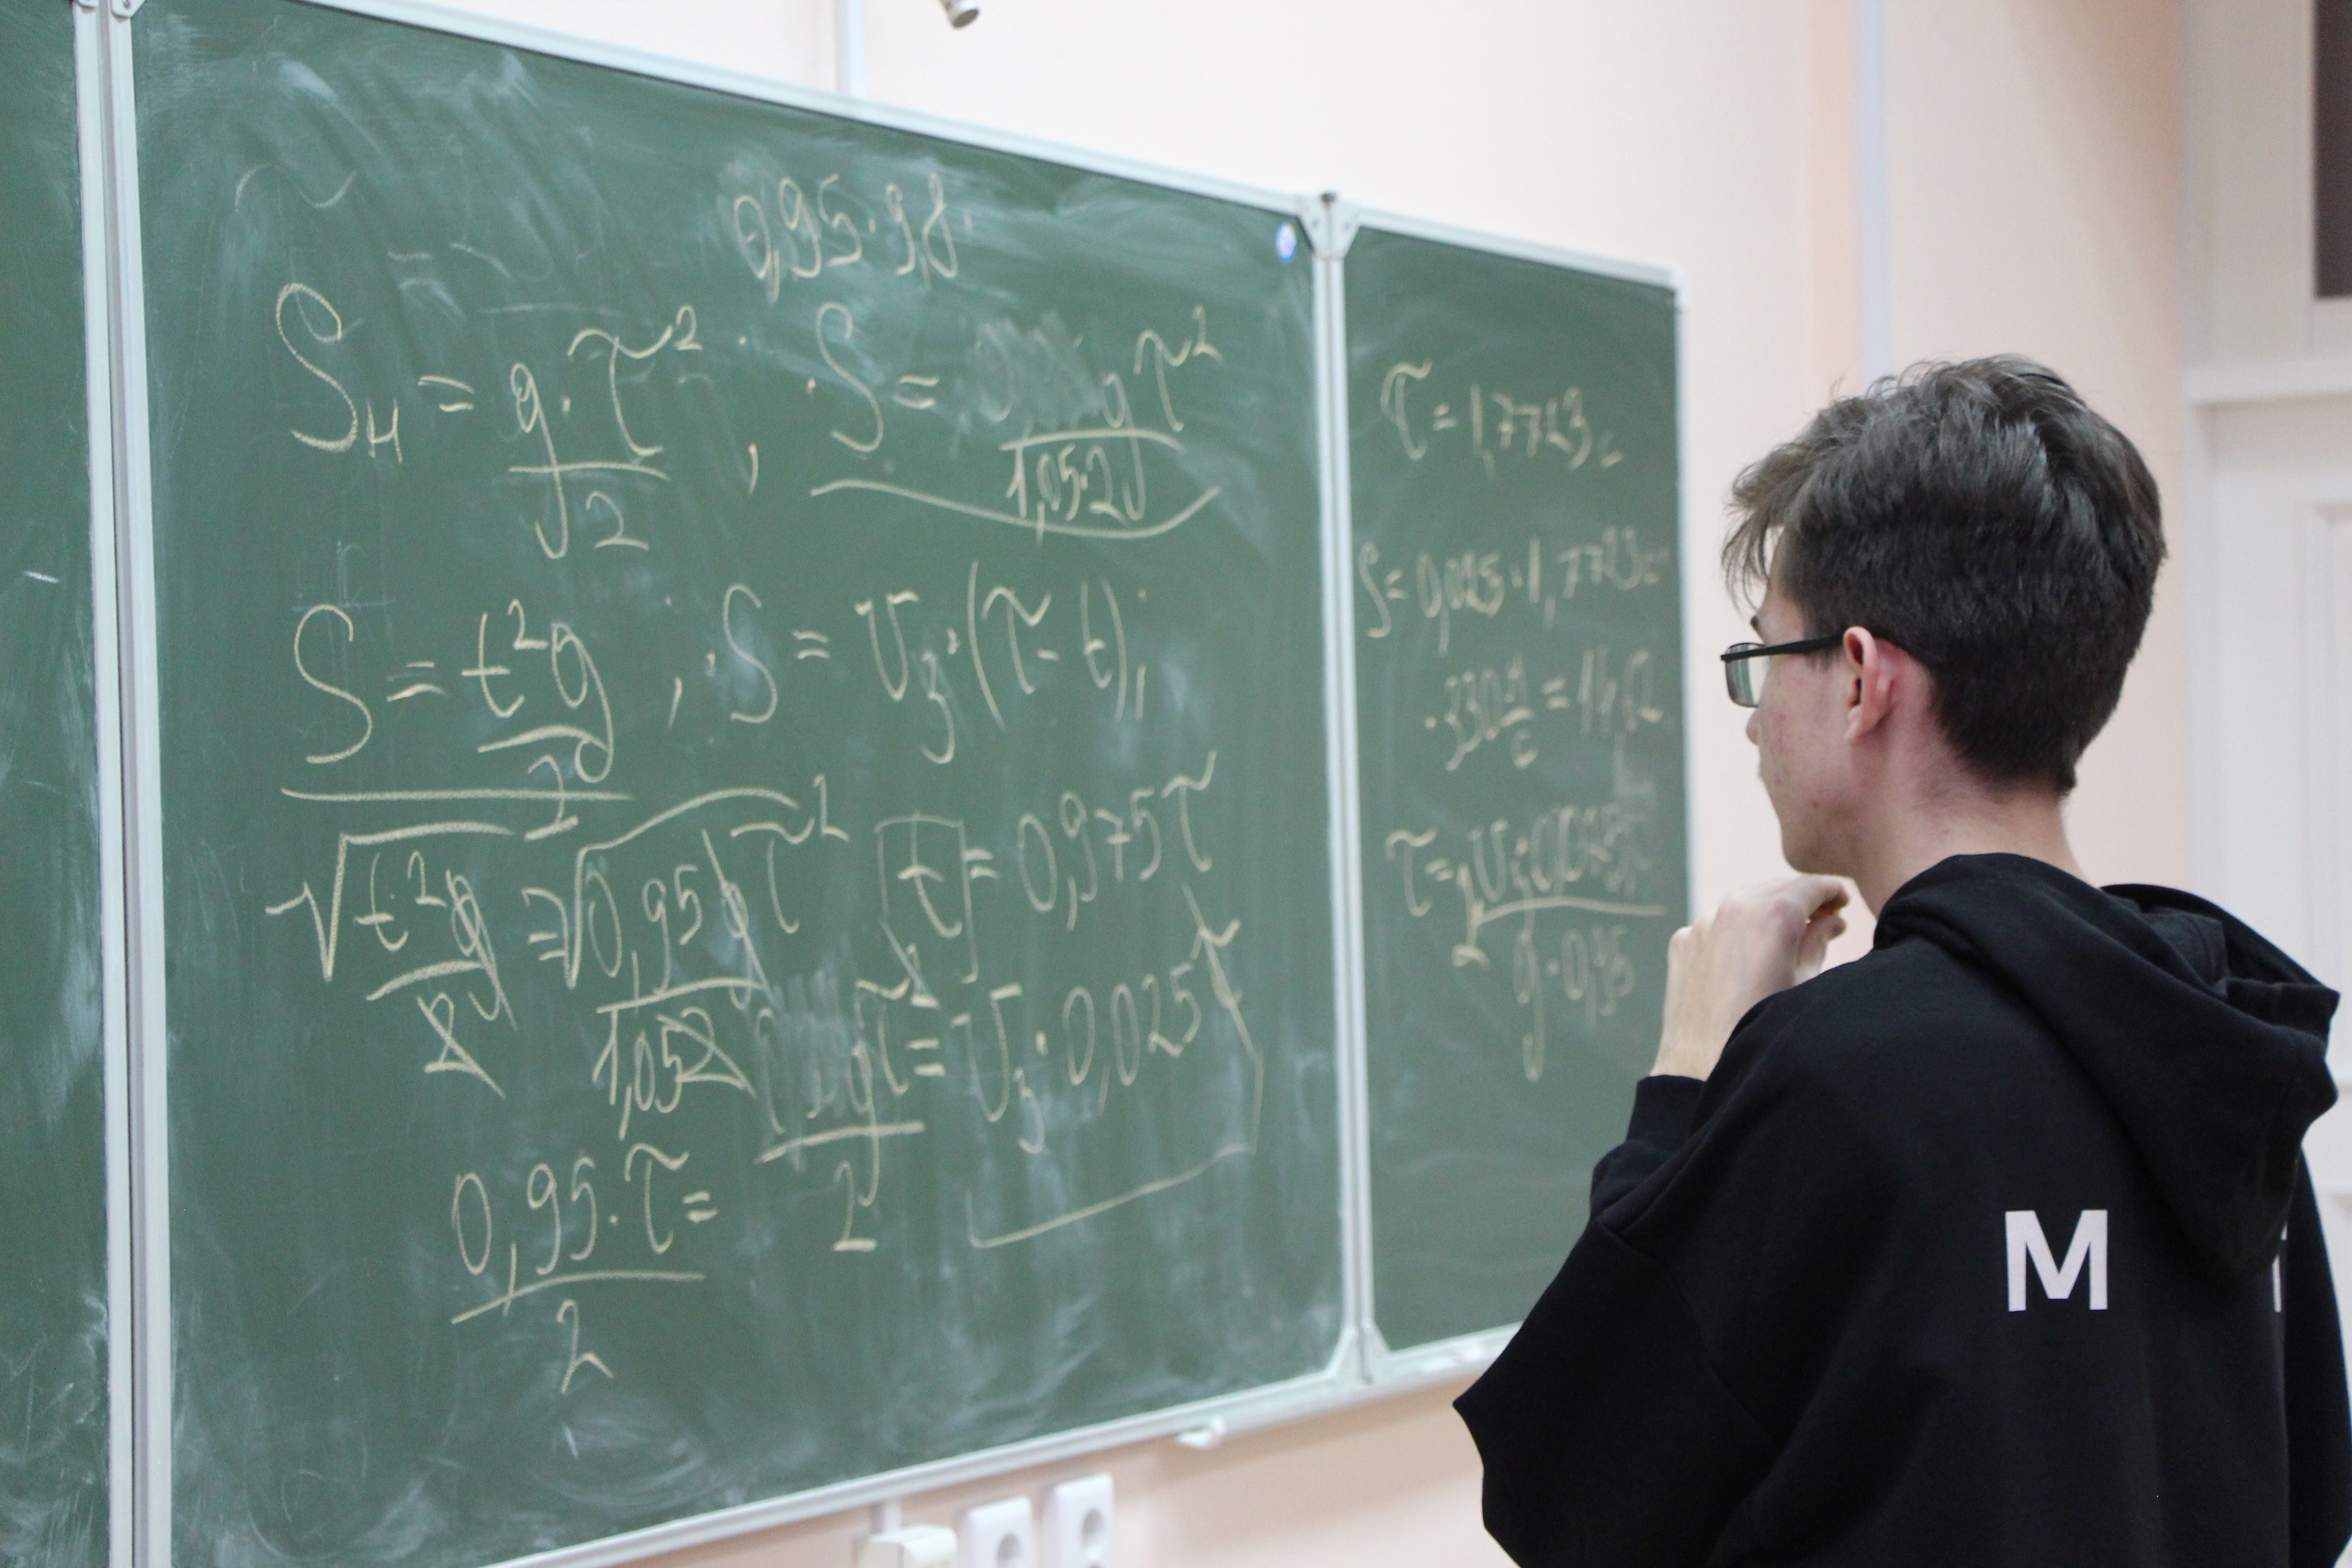 0,95·9,8·
Sн = g·τ²/2 , S = gτ²/1,05·2
S = t²g/2 , S = υз·(τ-t);
√t²g/2 = √0,95gτ²/1,052 t = 0,975τ
gτ/2 = υз·0,025τ
0,95·τ=/2
τ = 1,7723с
S = 0,025·1,7723с
·330м/с = 14,62
τ=
g·0,95
M